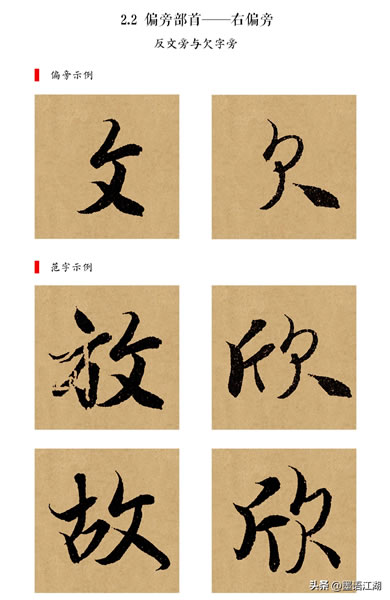 2.2 偏旁部首——右偏旁
反文旁与欠字旁
偏旁示例
攵 欠
范字示例
放 欣
故 欣
头条 @墨语江湖